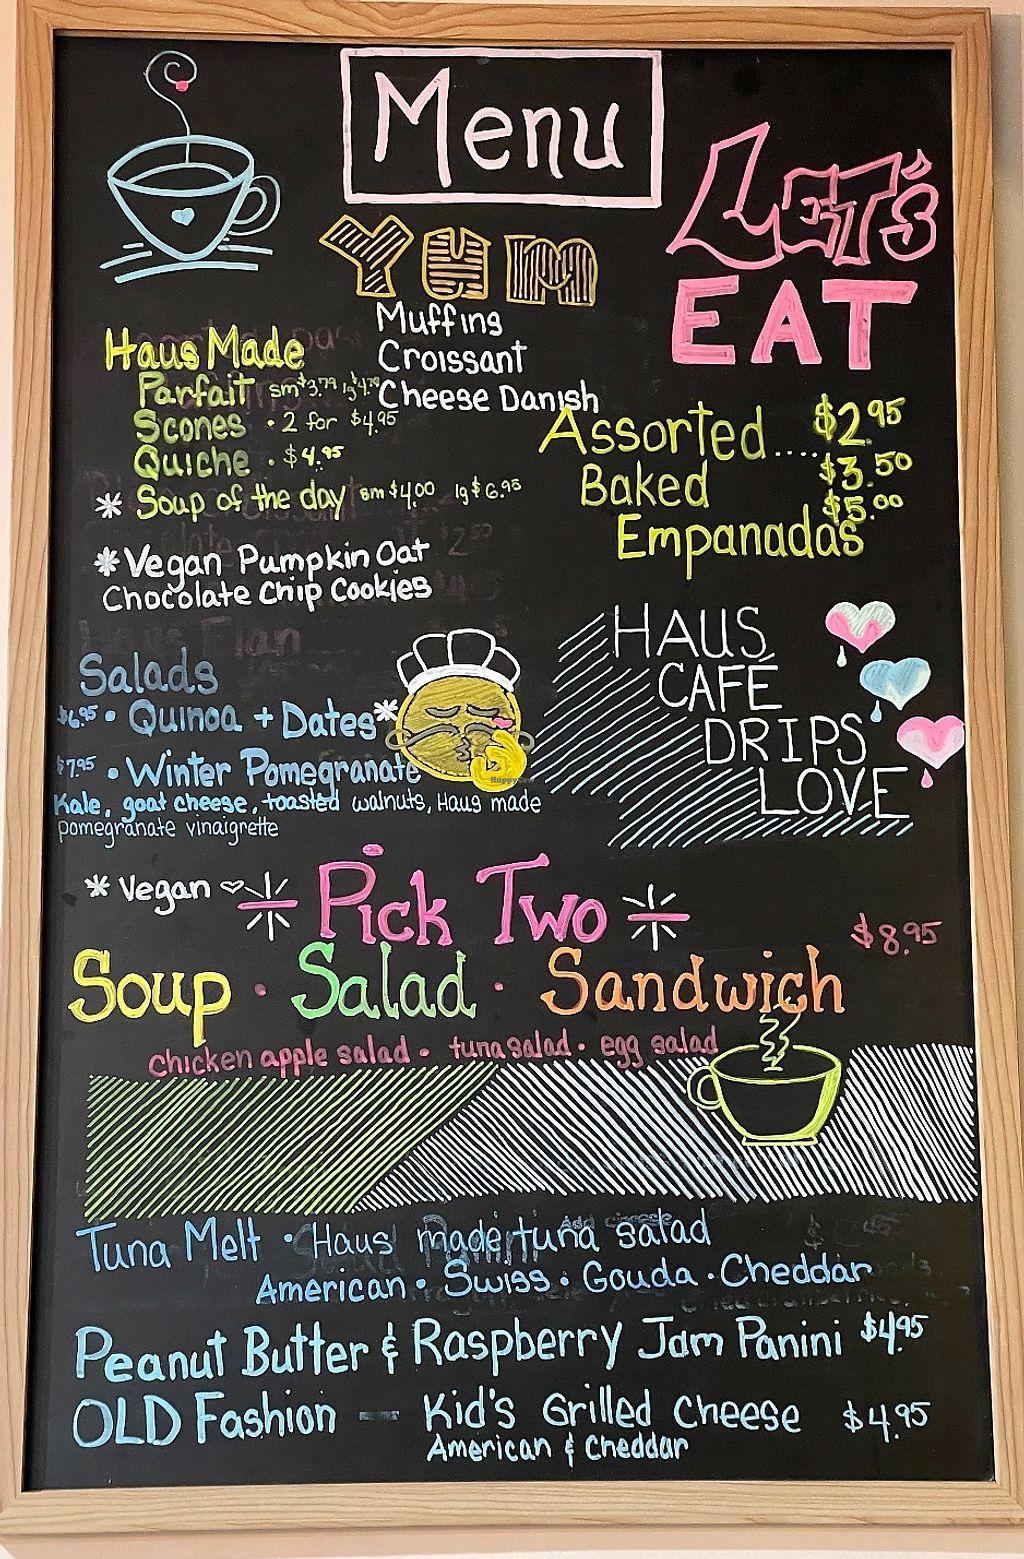 Menu
YUM
LET'S
EAT
Muffins
Croissant
Cheese Danish
Haus Made
Parfait sm $3.79 lg $4.79
Scones • 2 for $4.95
Quiche • $4.95
* Soup of the day sm $4.00 lg $6.95
Assorted.... $2.95
Baked $3.50
Empanadas $5.00
* Vegan Pumpkin Oat
Chocolate Chip Cookies
HAUS
CAFE
DRIPS
LOVE
Salads
$6.95 • Quinoa + Dates *
$7.95 • Winter Pomegranate
Kale, goat cheese, toasted walnuts, Haus made
pomegranate vinaigrette
* Vegan
Pick Two
$8.95
Soup • Salad • Sandwich
chicken apple salad • tuna salad • egg salad
Tuna Melt • Haus made tuna salad
American • Swiss • Gouda • Cheddar
Peanut Butter & Raspberry Jam Panini $4.95
OLD Fashion — Kid's Grilled Cheese $4.95
American & Cheddar